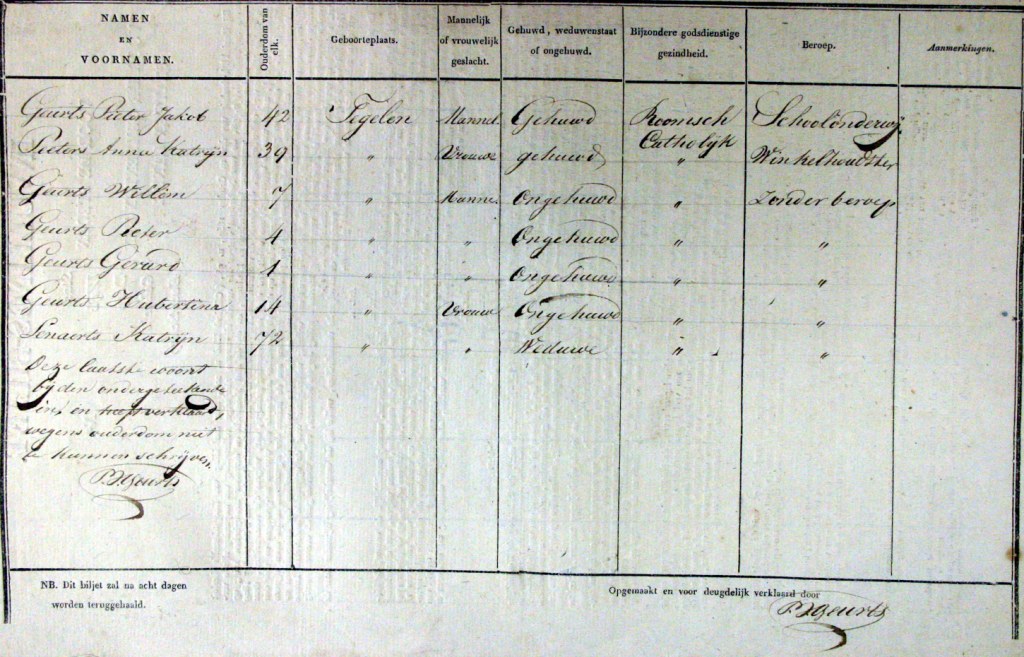 NAMEN EN VOORNAMEN. Ouderdom van elk. Geboorteplaats. Mannelijk of vrouwelijk geslacht. Gehuwd, weduwenstaat of ongehuwd. Bijzondere godsdienstige gezindheid. Beroep. Aanmerkingen.
Geurts Pieter Jakob 42 Tegelen Mannel. Gehuwd Roomsch Catholyk Schoolonderwij.
Pieters Anna Katrijn 39 " Vrouwe gehuwd " Winkelhoudster
Geurts Willem 7 " Manne. Ongehuwd " Zonder beroep
Geurts Pieter 4 " " Ongehuwd " "
Geurts Gerard 1 " " Ongehuwd " "
Geurts Hubertina 14 " Vrouw Ongehuwd " "
Lenaerts Katrijn 72 " " Weduwe " "
Deze laatste woont
bij den ondergeteekende
in, en heeft verklaard,
wegens ouderdom niet
te kunnen schrijven.
P.J. Geurts
NB. Dit biljet zal na acht dagen
worden teruggehaald.
Opgemaakt en voor deugdelijk verklaard door
P.J. Geurts